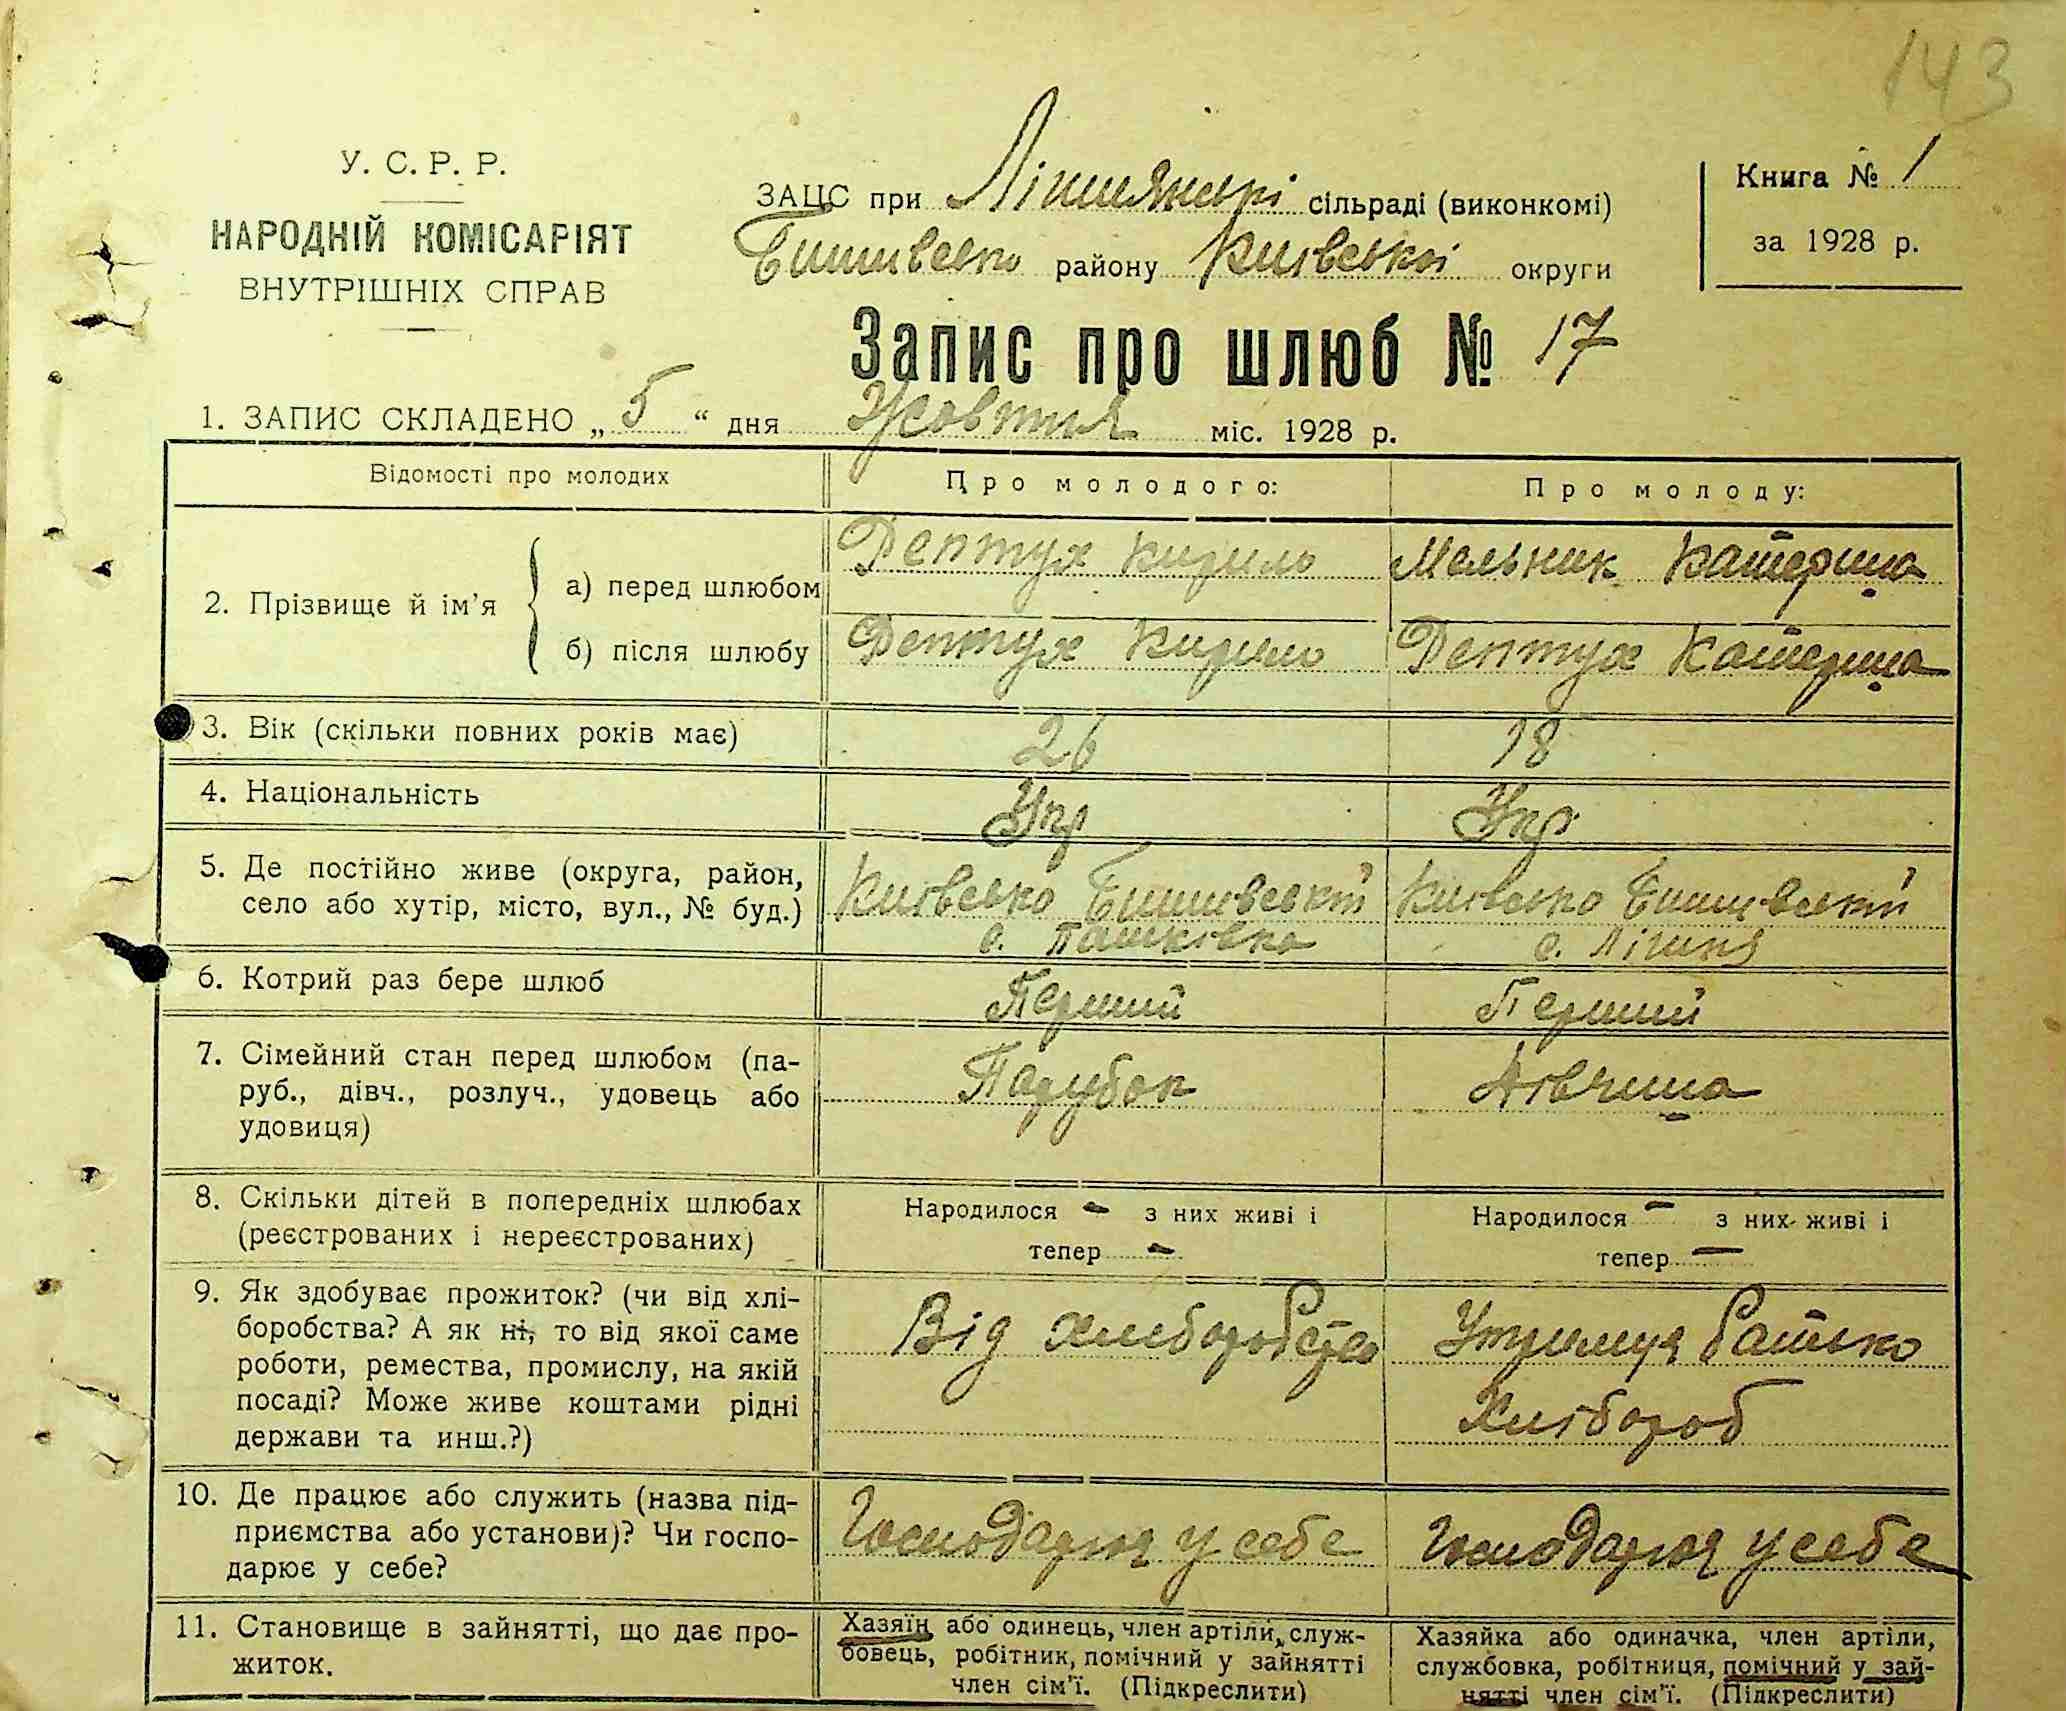 143
У. С. Р. Р.
НАРОДНІЙ КОМІСАРІЯТ
ВНУТРІШНІХ СПРАВ
ЗАЦС при Лішнянські сільраді (виконкомі)
Бишивсько району Київської округи
Книга № 1
за 1928 р.
Запис про шлюб № 17
1. ЗАПИС СКЛАДЕНО „ 5 “ дня Жовтня міс. 1928 р.
Відомості про молодих
Про молодого:
Про молоду:
2. Прізвище й ім’я
а) перед шлюбом
Дептух Кирило
Мельник Катерина
б) після шлюбу
Дептух Кирило
Дептух Катерина
3. Вік (скільки повних років має)
26
18
4. Національність
Укр
Укр.
5. Де постійно живе (округа, район,
село або хутір, місто, вул., № буд.)
Київсько Бишивський
с. Пашківка
Київсько Бишивський
с. Лішня
6. Котрий раз бере шлюб
Перший
Перший
7. Сімейний стан перед шлюбом (па-
руб., дівч., розлуч., удовець або
удовиця)
Парубок
Дівчина
8. Скільки дітей в попередніх шлюбах
(реєстрованих і нереєстрованих)
Народилося - з них живі і
тепер -
Народилося - з них живі і
тепер -
9. Як здобуває прожиток? (чи від хлі-
боробства? А як ні, то від якої саме
роботи, ремества, промислу, на якій
посаді? Може живе коштами рідні
держави та инш.?)
Від хліборобства
Утримує батько
Хлібороб
10. Де працює або служить (назва під-
приємства або установи)? Чи госпо-
дарює у себе?
Господарює у себе
Господарює у себе
11. Становище в зайнятті, що дає про-
житок.
Хазяїн або одинець, член артіли, служ-
бовець, робітник, помічний у зайнятті
член сім’ї. (Підкреслити)
Хазяйка або одиначка, член артіли,
службовка, робітниця, помічний у зай-
нятті член сім’ї. (Підкреслити)